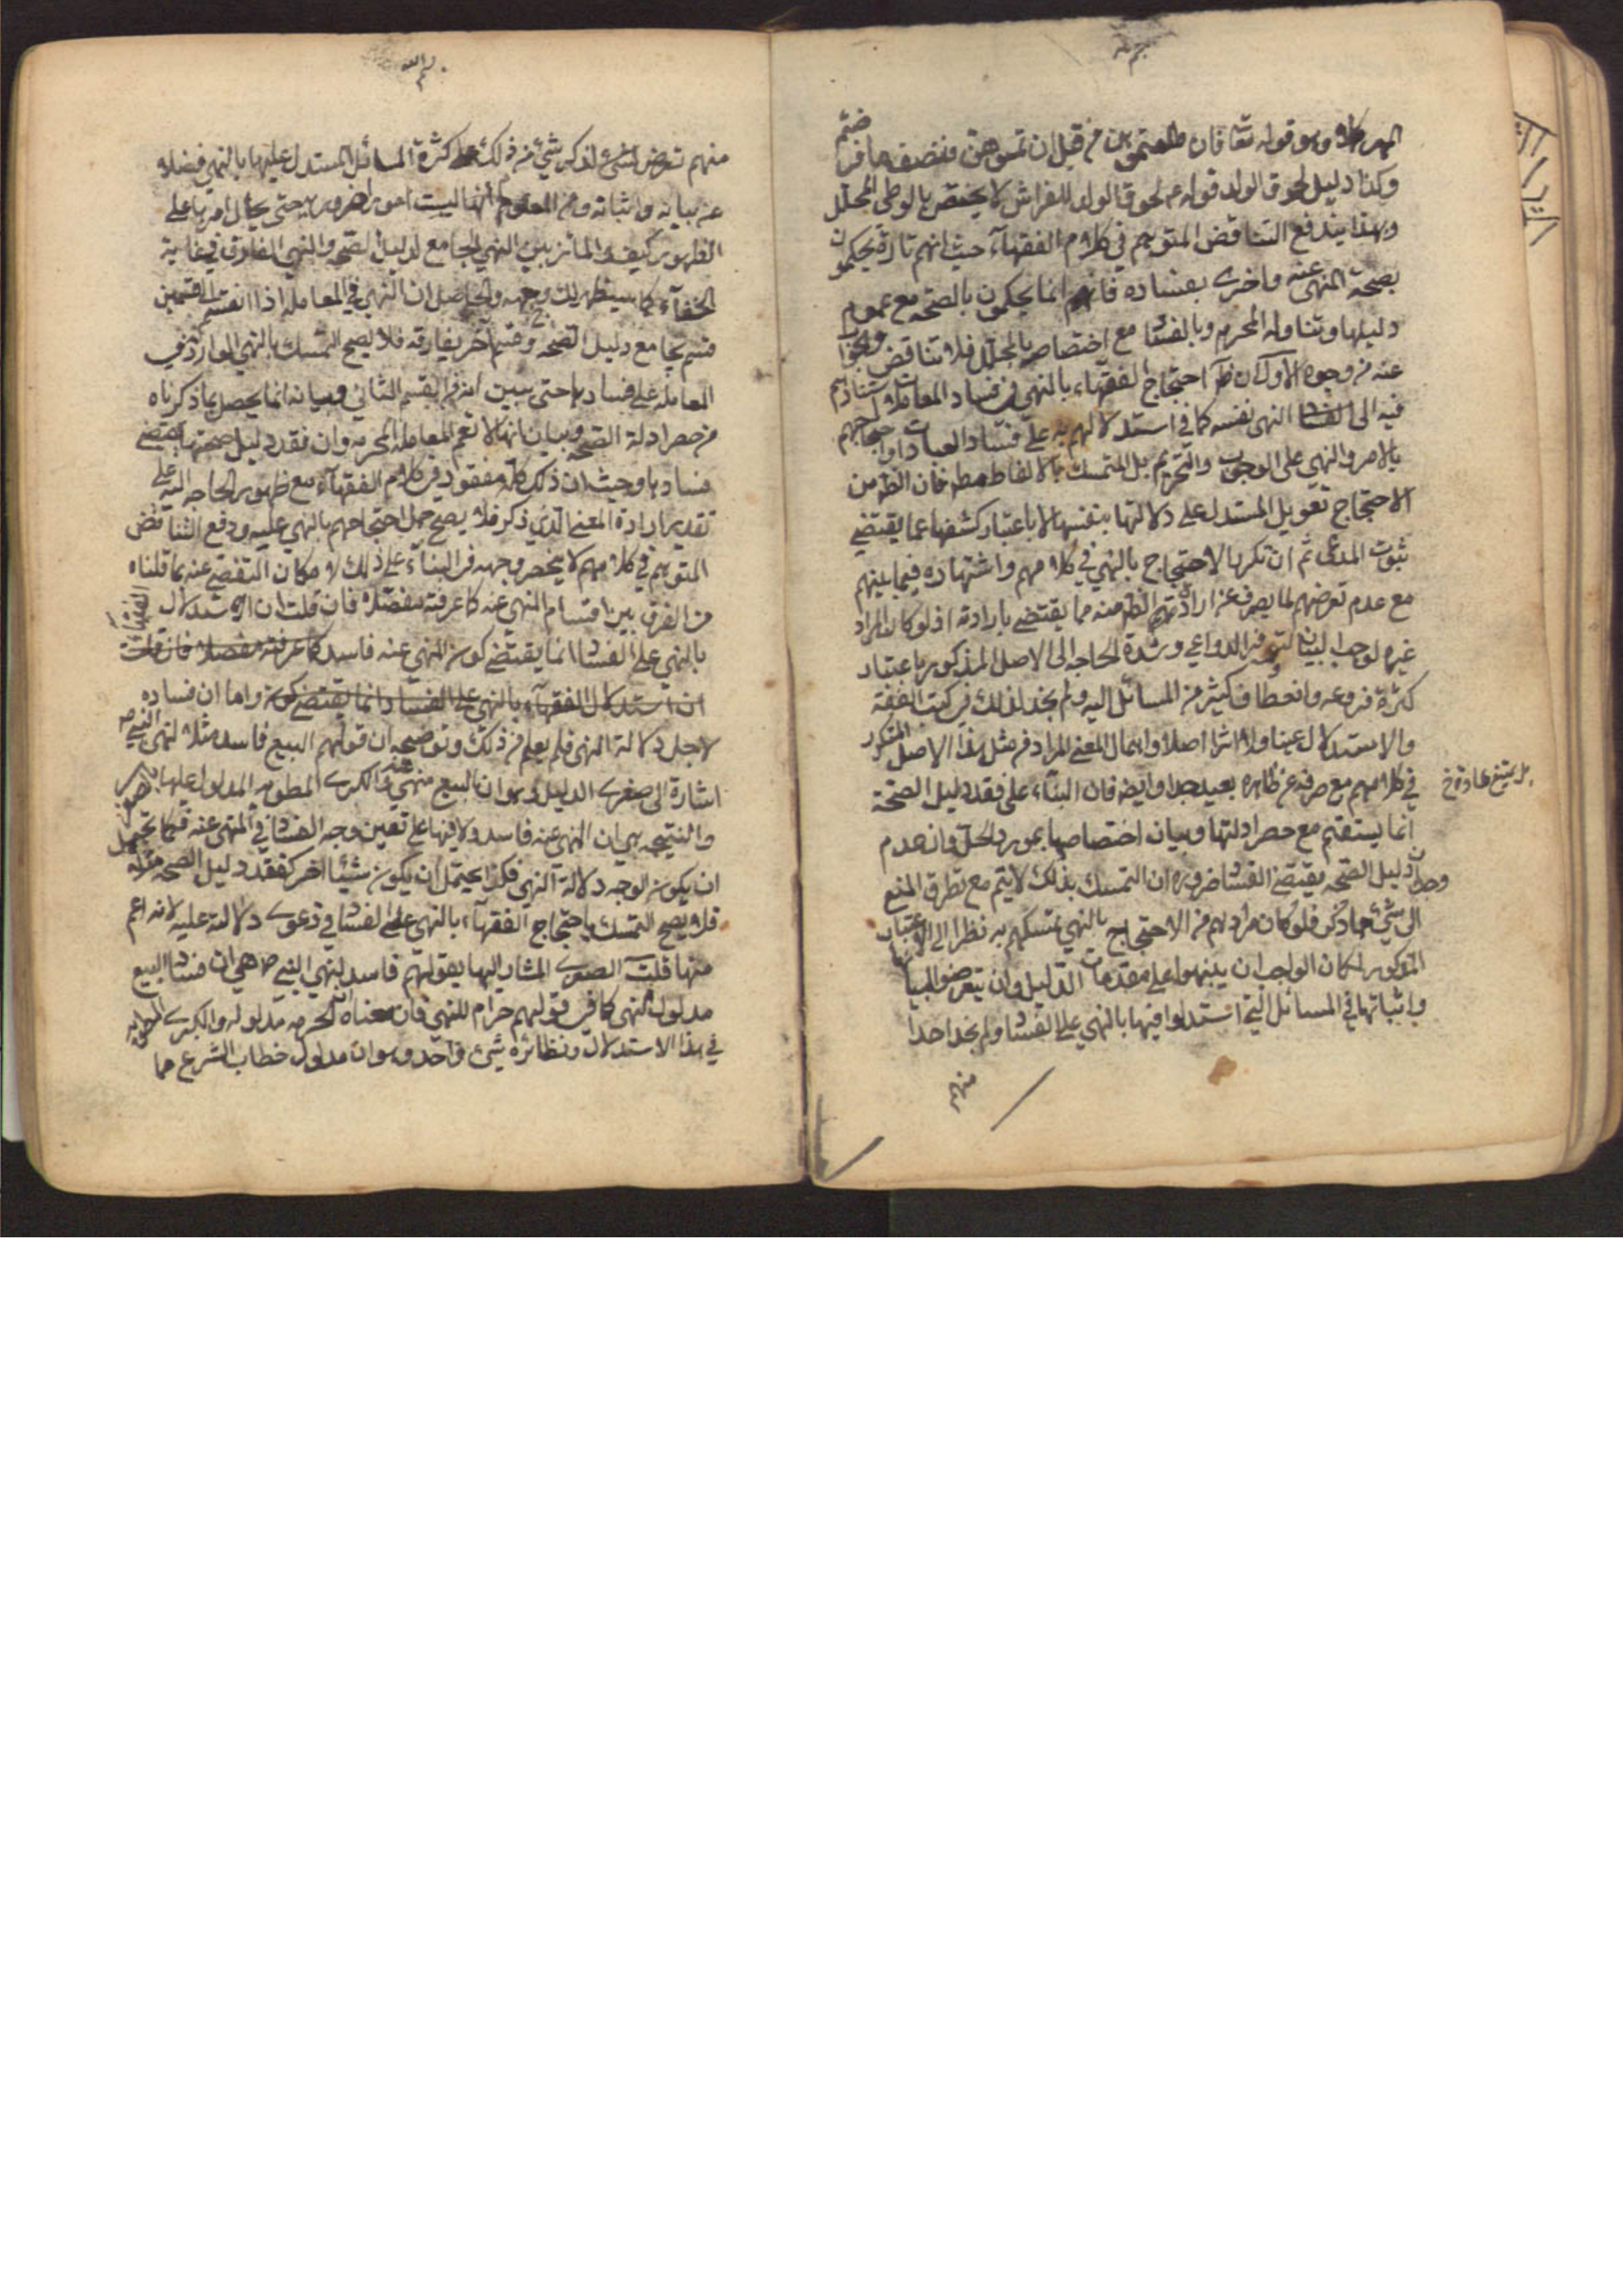 بسم الله
المهر كلا وهو قوله تعا فان طلقتموهن من قبل ان تمسوهن فنصف ما فرضتم
وكذا دليل لحوق الولد قوله لحوق الولد للفراش لا يختص بالوطى المحلل
وبهذا يندفع التناقض المتوهم في كلام الفقهاء حيث انهم تارة يحكمون
بصحة المنهى عنه واخرى بفساده فانهم انما يحكمون بالصحه مع عموم
دليلها وتناوله المحرم وبالفسا مع اختصاصه بالمحلل فلا تناقض والجواب
عنه من وجوه الاول ان ظ احتجاج الفقهاء بالنهى في فساد المعاملات استنادهم
فيه الى النهى نفسه كما في استدلالهم به على فساد العبادات واحتجاجهم
بالامر والنهي على الوجوب والتحريم بل التمسك بالالفاظ مطه فان الظ من
الاحتجاج تعويل المستدل على دلالتها بنفسها لا باعتبار كشفها عما يقتضي
ثبوت المدعى ثم ان تكرر الاحتجاج بالنهي في كلامهم واشتهاره فيما بينهم
مع عدم تعرضهم لما يصرف عن ارادتهم الظ منه مما يقتضي بارادته اذ لو كان المراد
غيره لوجب البيان لتوفر الدواعي وشدة الحاجه الى الاصل المذكور باعتبار
كثرة فروعه وانعطاف كثير من المسائل اليه ولم نجد لذلك في كتب الفقه
والاستدلال عينا ولا اثرا اصلا واهمال المعنى المراد في مثل هذا الاصل المتكرر
في كلامهم مع صرفه عن ظاهره بعيد جدا وايضه فان البناء على فقد دليل الصحة
بل يمتنع عادة خ
انما يستقيم مع حصر ادلتها وبيان اختصاصها بمورد الحل وان عدم
وجدان دليل الصحه يقتضى الفسا ضرورة ان التمسك بذلك لا يتم مع تطرق المنع
الى شئ مما ذكر فلو كان مرادهم من الاحتجاج بالنهي تمسكهم به نظرا الى الاعتبار
المذكور لكان الواجب ان ينبهوا على مقدمات الدليل وان يتعرضوا لبيانها
واثباتها في المسائل التي استدلوا فيها بالنهي على الفسا ولم نجد احدا
منهم
بسم الله
منهم تعرض لذكر شئ من ذلك على كثرة المسائل المستدل عليها بالنهى فضلا
عن بيانه واثباته ومن المعلوم انها ليست امورا ضروريه حتى يحال امرها على
الظهور كيف والمائز بين النهي الجامع لدليل الصحه والنهي المفارق في غاية
الخفاء كما سيظهر لك وجهه والحاصل ان النهي في المعامله اذا انقسم الى قسمين
قسم يجامع دليل الصحه وقسم آخر يفارقه فلا يصح التمسك بالنهي الوارد في
المعامله على فسادها حتى يبين انه من القسم الثاني وبيانه انما يحصل بما ذكرناه
من حصر ادلة الصحه وبيان انها لا تعم المعامله المحرمه وان فقد دليل صحتها يقتضى
فسادها وحيث ان ذلك كله مفقود في كلام الفقهاء مع ظهور الحاجه اليه على
تقدير ارادة المعنى الذي ذكر فلا يصح حمل احتجاجهم بالنهي عليه ودفع التناقض
المتوهم في كلامهم لا ينحصر وجهه في البناء على ذلك لامكان التفصي عنه بما قلناه
من الفرق بين اقسام المنهى عنه كما عرفته مفصلا فان قلت ان استدلال الفقهاء
بالنهي على الفسا انما يقتضي كون المنهي عنه فاسد كما عرفته مفصلا فان قلت
ان استدلال الفقهاء بالنهي على الفساد انما يقتضي كون واما ان فساده
لاجل دلالة النهى فلم يعلم من ذلك وتوضيحه ان قولهم البيع فاسد مثلا لنهى النبي ص
اشارة الى صغرى الدليل وهو ان البيع منهي عنه والكبرى المطويه المدلول عليها
والنتيجه هي ان المنهي عنه فاسد ولا فيها على تعيين وجه الفسا في المنهى عنه فكما يحتمل
ان يكون الوجه دلالة النهى فكذا يحتمل ان يكون شيئا اخر كفقد دليل الصحه مثلا
فلا يصح التمسك باحتجاج الفقهاء بالنهى على الفسا في دعوى دلالته عليه لانه اعم
منها قلت الصغرى المشار اليها بقولهم فاسد لنهي النبي ص هي ان فسا البيع
مدلول النهى كما في قولهم حرام للنهي فان معناه ان الحرمه مدلوله والكبرى
في هذا الاستدلال ونظائره شئ واحد وهو ان مدلول خطاب الشرع مما